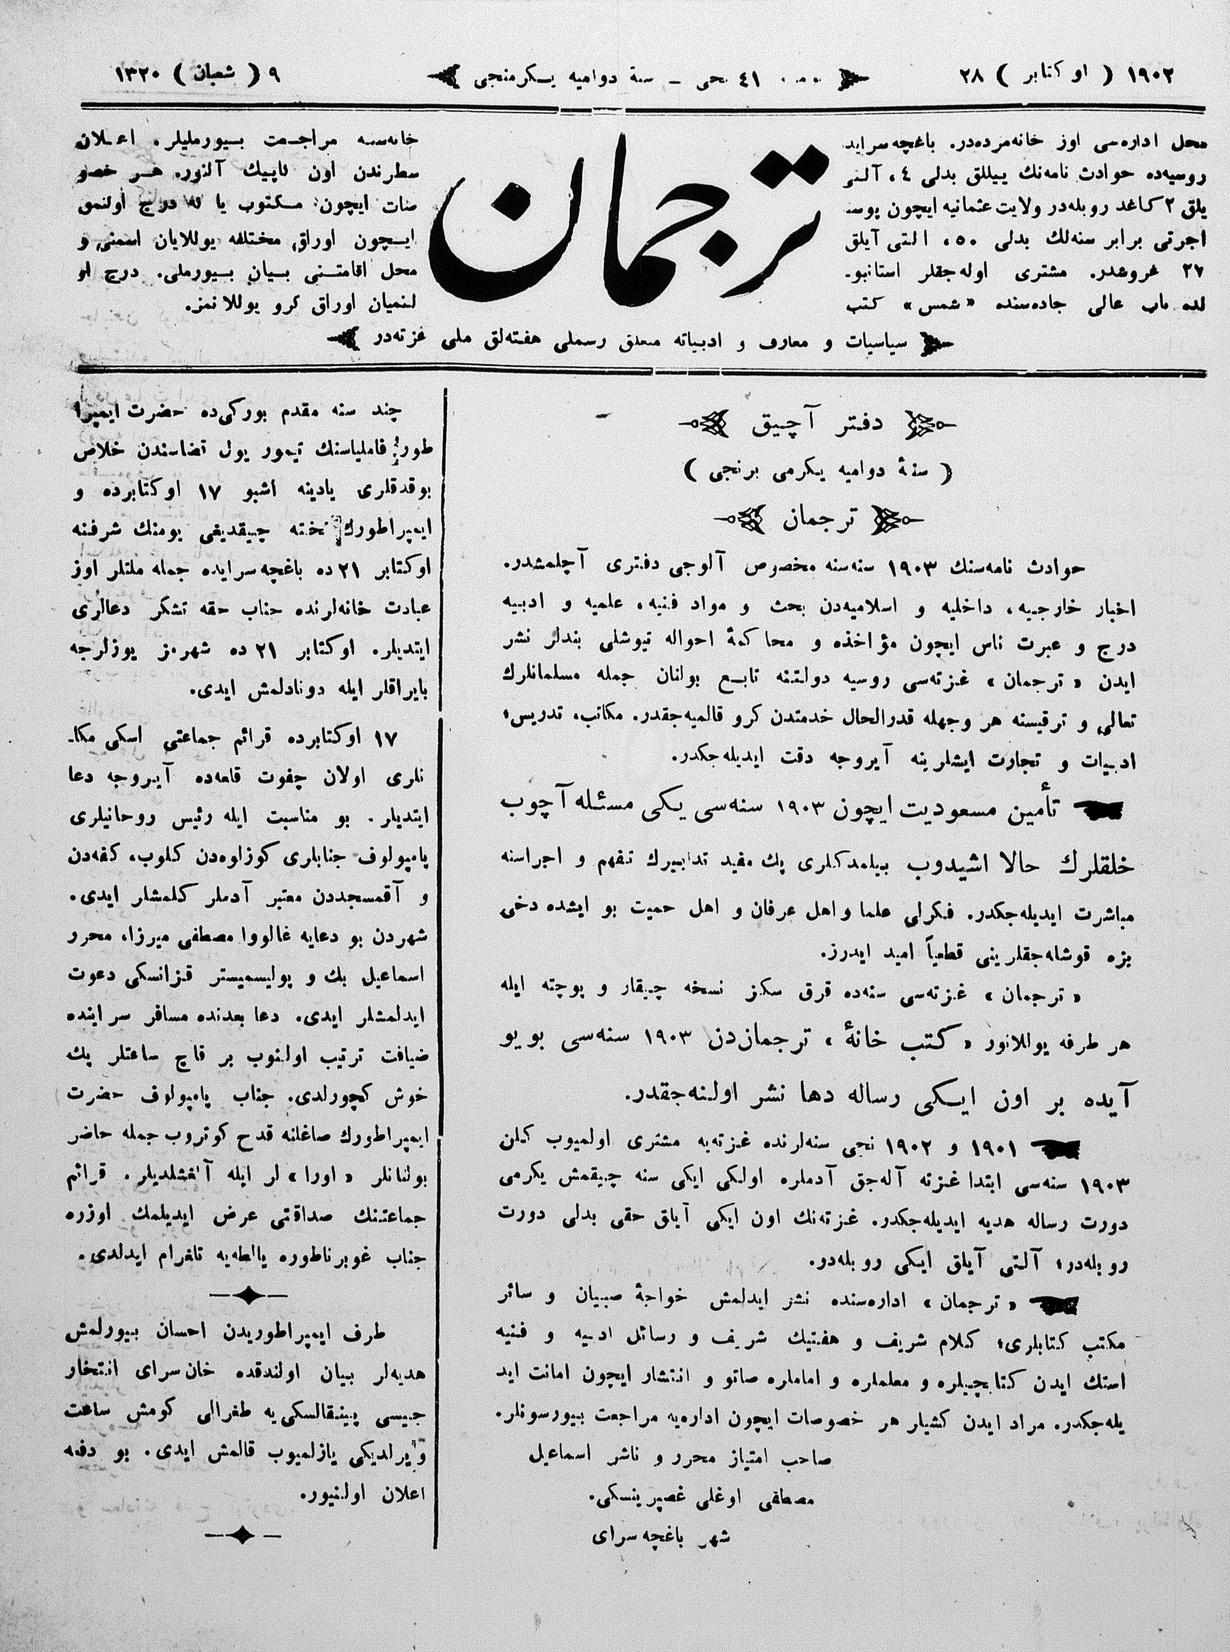 ١٩٠٢ ( اوكتابر ) ٢٨
٤١ نجى ـ سنۀ دواميه يكرمنجى
٩ ( شعبان ) ١٣٢٠
محل اداره‌سى اوز خانه‌مزده‌در. باغچه‌سرايد
روسيه‌ده حوادث نامه‌نك ييللق بدلى ٤، آلتى
يلق ٢ كاغد روبله‌در ولايت عثمانيه ايچون پوسـ
اجرتى برابر سنه‌لك بدلى ٥٠، التى آيلق
٢٧ غروشدر. مشترى اوله‌جقلر استانبو۔
لده باب عالى جاده‌سنده «شمس» كتب
ترجمان
خانه‌سنه مراجعت بيورمليلر. اعلان
سطرندن اون كاپيك آلنور. هر خصو
صات ايچون مكتوب يا كه درج اولنمق
ايچون اوراق مختلفه يوللايان اسمنى و
محل اقامتنى بيان بيورملى. درج او
لنميان اوراق كرو يوللانمز.
سياسيات و معارف و ادبياته متعلق رسملى هفته‌لق ملى غزته‌در
دفتر آچيق
( سنۀ دواميه يكرمى برنجى )
ترجمان
حوادث نامه‌سنك ١٩٠٣ سنه‌سنه مخصوص آلوجى دفترى آچلمشدر.
اخبار خارجيه، داخليه و اسلاميه‌دن بحث و مواد فنيه، علميه و ادبيه
درج و عبرت ناس ايچون مؤاخذه و محاكمۀ احواله تيوشلى بندلر نشر
ايدن «ترجمان» غزته‌سى روسيه دولتنه تابع بولنان جمله مسلمانلرك
تعالى و ترقيسنه هر وجهله قدرالحال خدمتدن كرو قالميه‌جقدر. مكاتب، تدريس،
ادبيات و تجارت ايشلرينه آيروجه دقت ايديله‌جكدر.
تأمين مسعوديت ايچون ١٩٠٣ سنه‌سى يكى مسئله آچوب
خلقلرك حالا اشيدوب بيلمدكلرى پك مفيد تدابيرك تفهم و اجراسنه
مباشرت ايديله‌جكدر. فكرلى علما و اهل عرفان و اهل حميت بو ايشده دخى
بزه قوشله‌جقلرينى قطعياً اميد ايدرز.
«ترجمان» غزته‌سى سنه‌ده قرق سكز نسخه چيقار و پوچته ايله
هر طرفه يوللانور «كتب خانۀ» ترجمان‌دن ١٩٠٣ سنه‌سى بويو
آيده بر اون ايكى رساله دها نشر اولنه‌جقدر.
١٩٠١ و ١٩٠٢ نجى سنه‌لرنده غزته‌يه مشترى اولميوب كلن
١٩٠٣ سنه‌سى ابتدا غزته آله‌جق آدملره اولكى ايكى سنه چيقمش يكرمى
دورت رساله هديه ايديله‌جكدر. غزته‌نك اون ايكى آيلق حقى بدلى دورت
روبله‌در، آلتى آيلق ايكى روبله‌در.
«ترجمان» اداره‌سنده نشر ايدلمش خواجۀ صبيان و سائر
مكتب كتابلرى، كلام شريف و هفتيك شريف و رسائل ادبيه و فنيه
استك ايدن كتابچيلره و معلملره و اماملره صاتو و انتشار ايچون امانت ايد
يله‌جكدر. مراد ايدن كشيلر هر خصوصات ايچون اداره‌يه مراجعت بيورسونلر.
صاحب امتياز محرر و ناشر اسماعيل
مصطفى اوغلى غصپرينسكى.
شهر باغچه سراى
چند سنه مقدم بوركى‌ده حضرت ايمپرا
طور فامليا‌سنك تيمور يول قضاسندن خلاص
بوقدقلرى يادينه اشبو ١٧ اوكتابرده و
ايمپراطورك تخته چيقديغى يومنك شرفنه
اوكتابر ٢١ ده باغچه‌سرايده جمله ملتلر اوز
عبادت خانه‌لرنده جناب حقه تشكر دعالرى
ايتديلر. اوكتابر ٢١ ده شهرمز يوزلرجه
بايراقلر ايله دونادلمش ايدى.
١٧ اوكتابرده قرائم جماعتى اسكى مكا۔
نلرى اولان چفوت قلعه‌ده آيروجه دعا
ايتديلر. بو مناسبت ايله رئيس روحانيلرى
پامپولوف جنابلرى كوزلوه‌دن كلوب، كفه‌دن
و آقمسجددن معتبر آدملر كلمشلر ايدى.
شهردن بو دعايه غالووا مصطفى ميرزا، محرر
اسماعيل بك و پوليسميستر قزانسكى دعوت
ايدلمشلر ايدى. دعا بعدنده مسافر سراينده
ضيافت ترتيب اولنوب بر قاچ ساعتلر پك
خوش كچورلدى. جناب پامپولوف حضرت
ايمپراطورك صاغلغنه قدح كوتروب جمله حاضر
بولنانلر «اورا» لر ايله آلقشلديلر. قرائم
جماعتنك صداقتى عرض ايديلمك اوزره
جناب غوبرناطوره يالطه‌يه تلغرام ايدلدى.
طرف ايمپراطوريدن احسان بيورلمش
هديه‌لر بيان اولندقده خان سراى انتخار
جيسى پينقالسكى‌يه طغرالى كومش ساعت
ويرلديكى يازلميوب قالمش ايدى. بو دفعه
اعلان اولنيور.